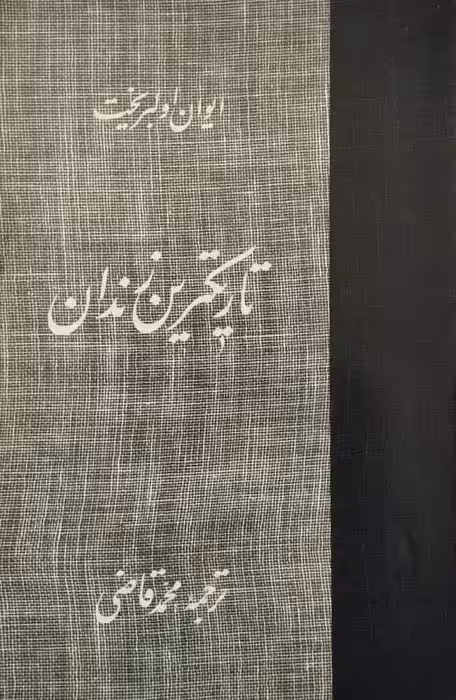 ایوان اولبریخت
تاریکترین زندان
ترجمه محمد قاضی